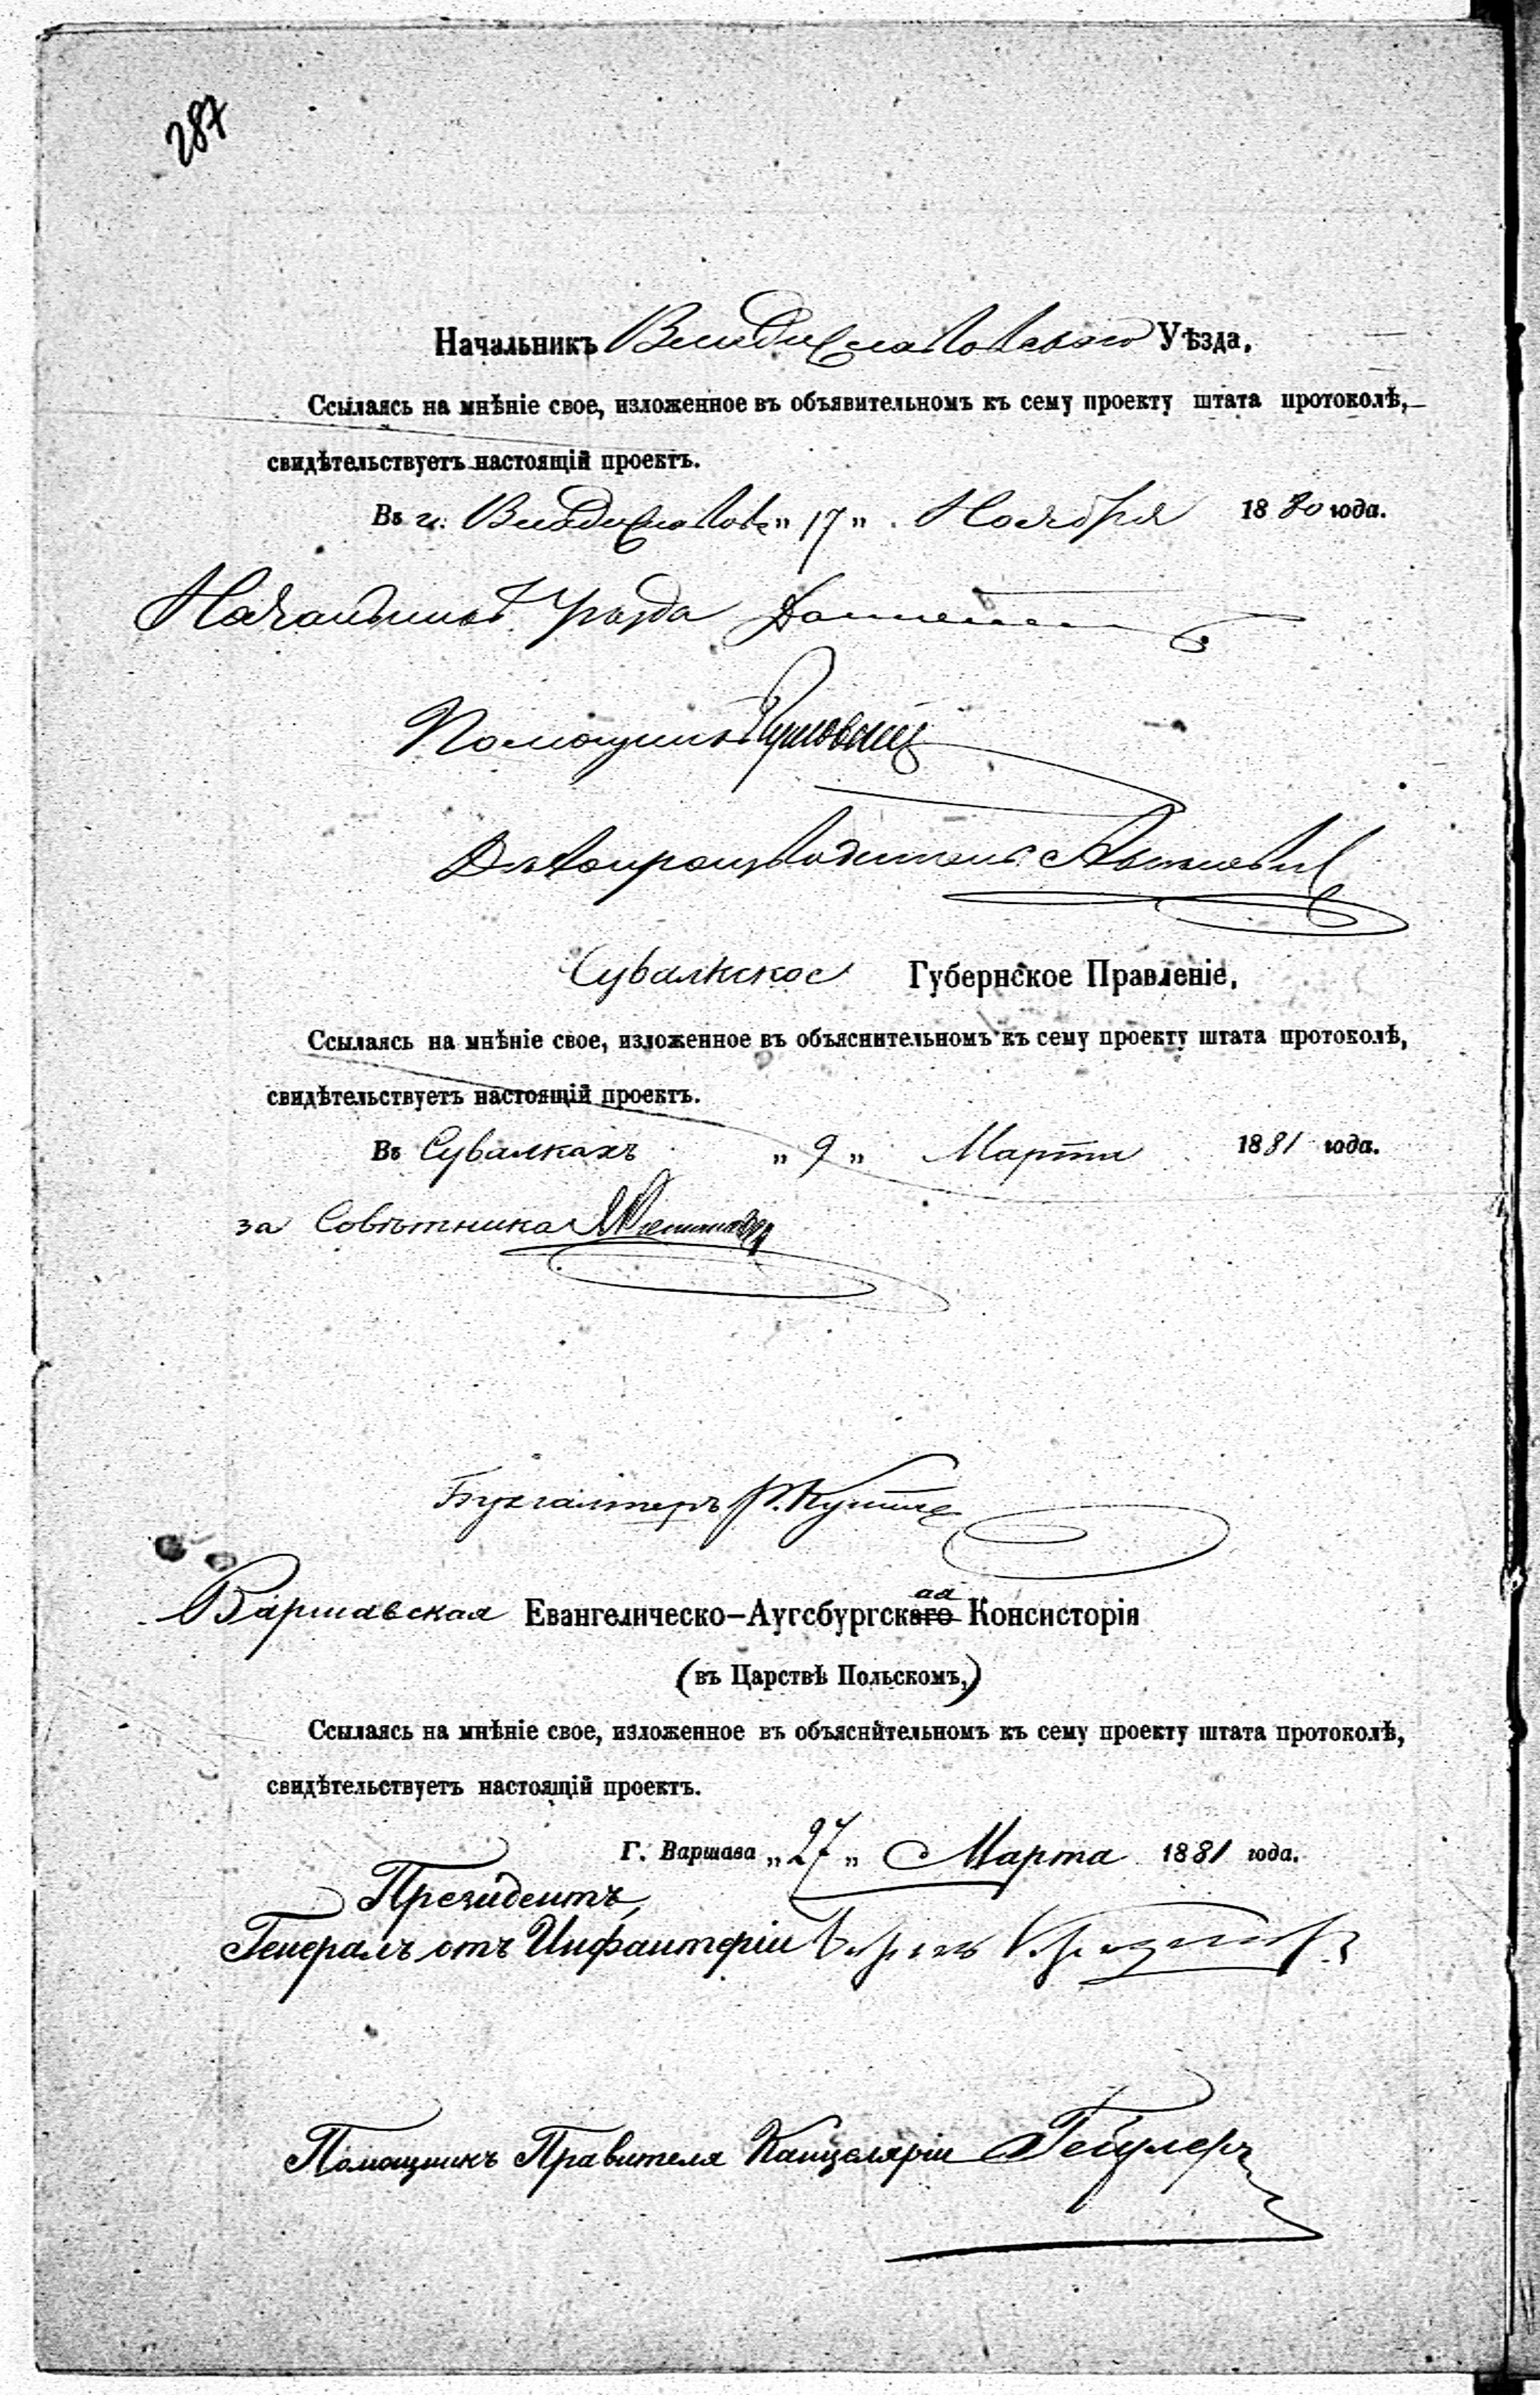 287
Начальникъ Владиславовскаго Уѣзда,
Ссылаясь на мнѣніе свое, изложенное въ объявительномъ къ сему проекту штата протоколѣ,
свидѣтельствуетъ настоящій проектъ.
Въ г. Владиславовѣ „ 17 „ Ноября 1880 года.
Начальникъ Уѣзда
Помощникъ
Дѣлопроизводитель
Сувалкское Губернское Правленіе,
Ссылаясь на мнѣніе свое, изложенное въ объяснительномъ къ сему проекту штата протоколѣ,
свидѣтельствуетъ настоящій проектъ.
Въ Сувалкахъ „ 9 „ Марта 1881 года.
за Совѣтника
Бухгалтеръ
Варшавская Евангелическо-Аугсбургская Консисторія
(въ Царствѣ Польскомъ,)
Ссылаясь на мнѣніе свое, изложенное въ объяснительномъ къ сему проекту штата протоколѣ,
свидѣтельствуетъ настоящій проектъ.
Г. Варшава „ 27 „ Марта 1881 года.
Президентъ,
Генералъ отъ Инфантеріи
Помощникъ Правителя Канцеляріи